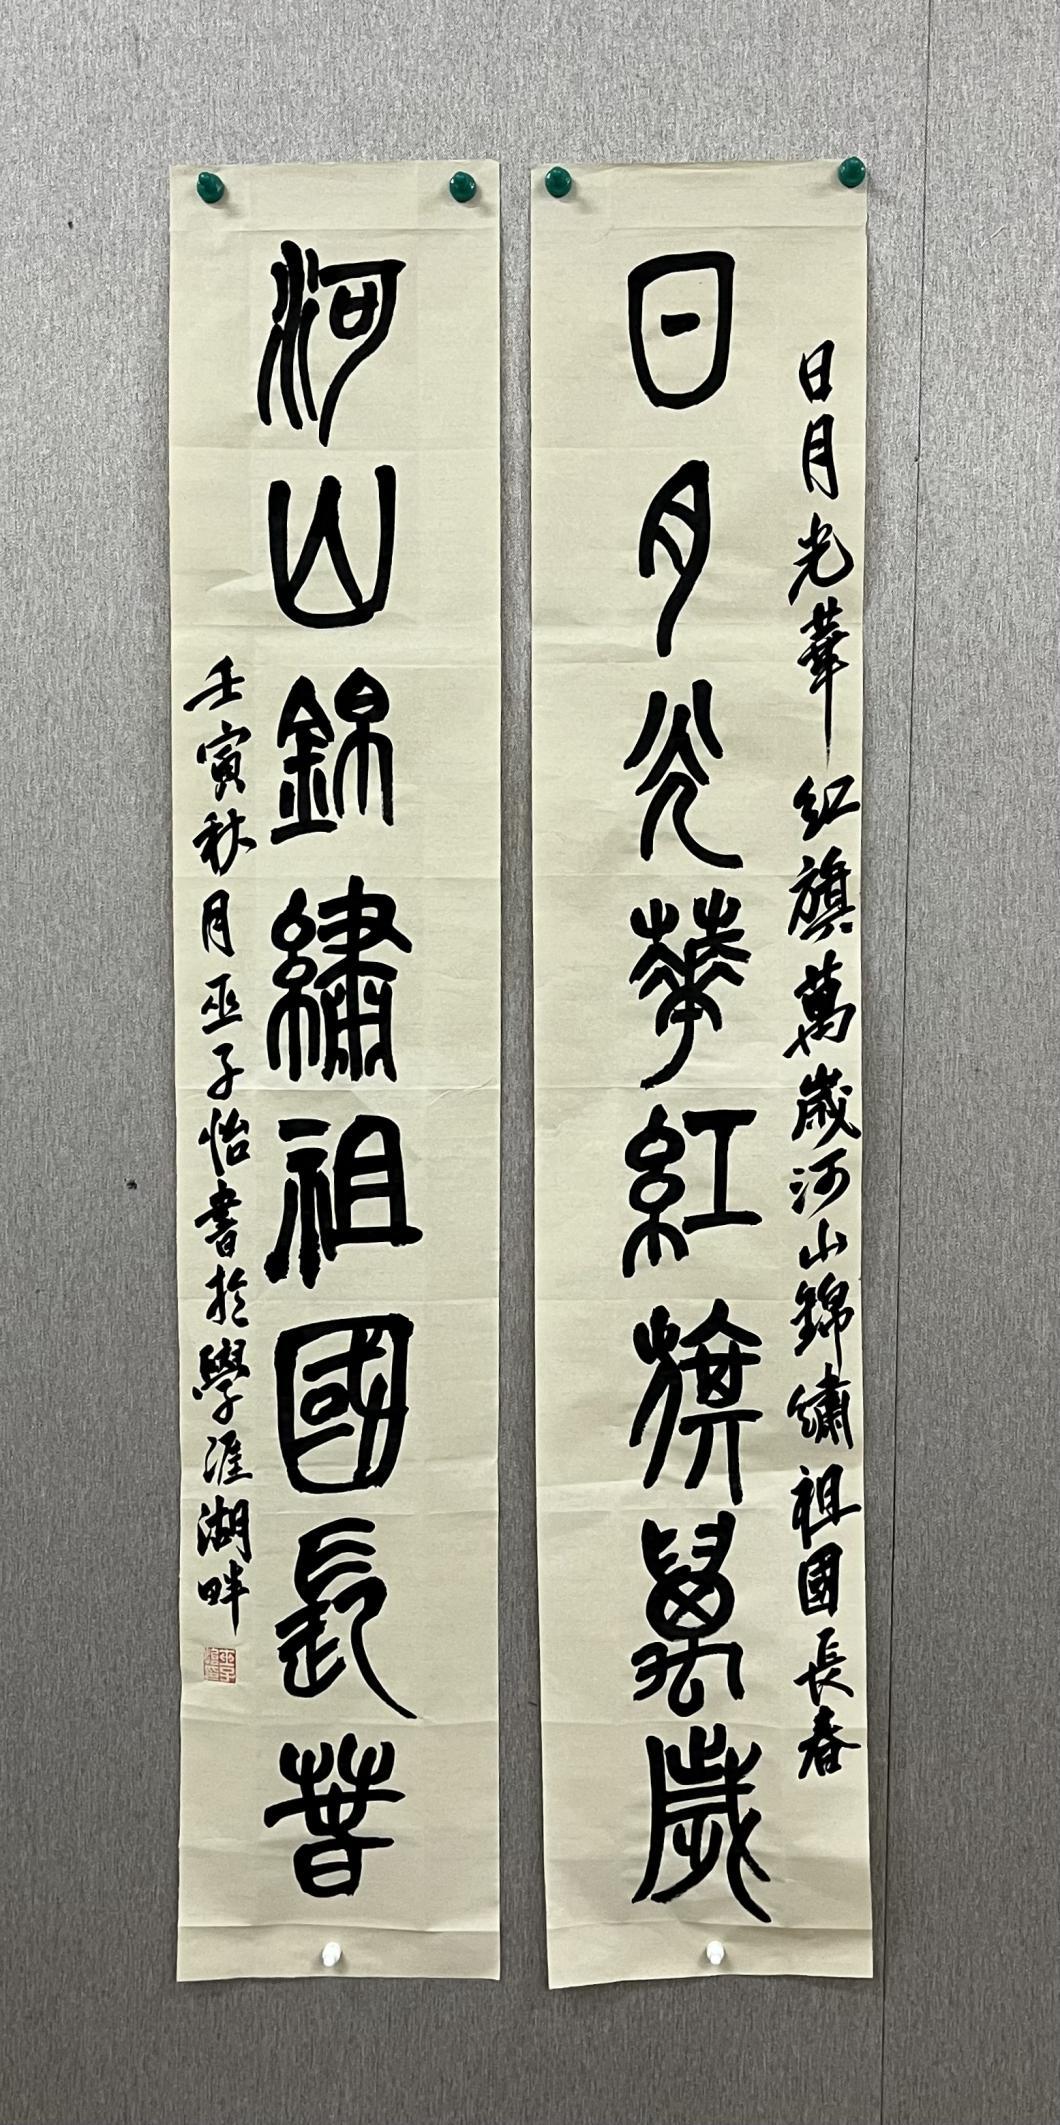 日月光華紅旗萬歲河山錦繡祖國長春
日月光華紅旗萬歲
河山錦繡祖國長萅
壬寅秋月巫子怡書於學涯湖畔